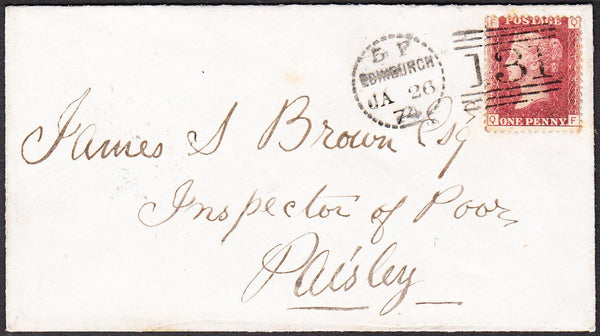 & F
EDINBURGH
JA 26
74
131
F Q
POSTAGE
Q ONE PENNY F
James S Brown Esq
Inspector of Poor
Paisley